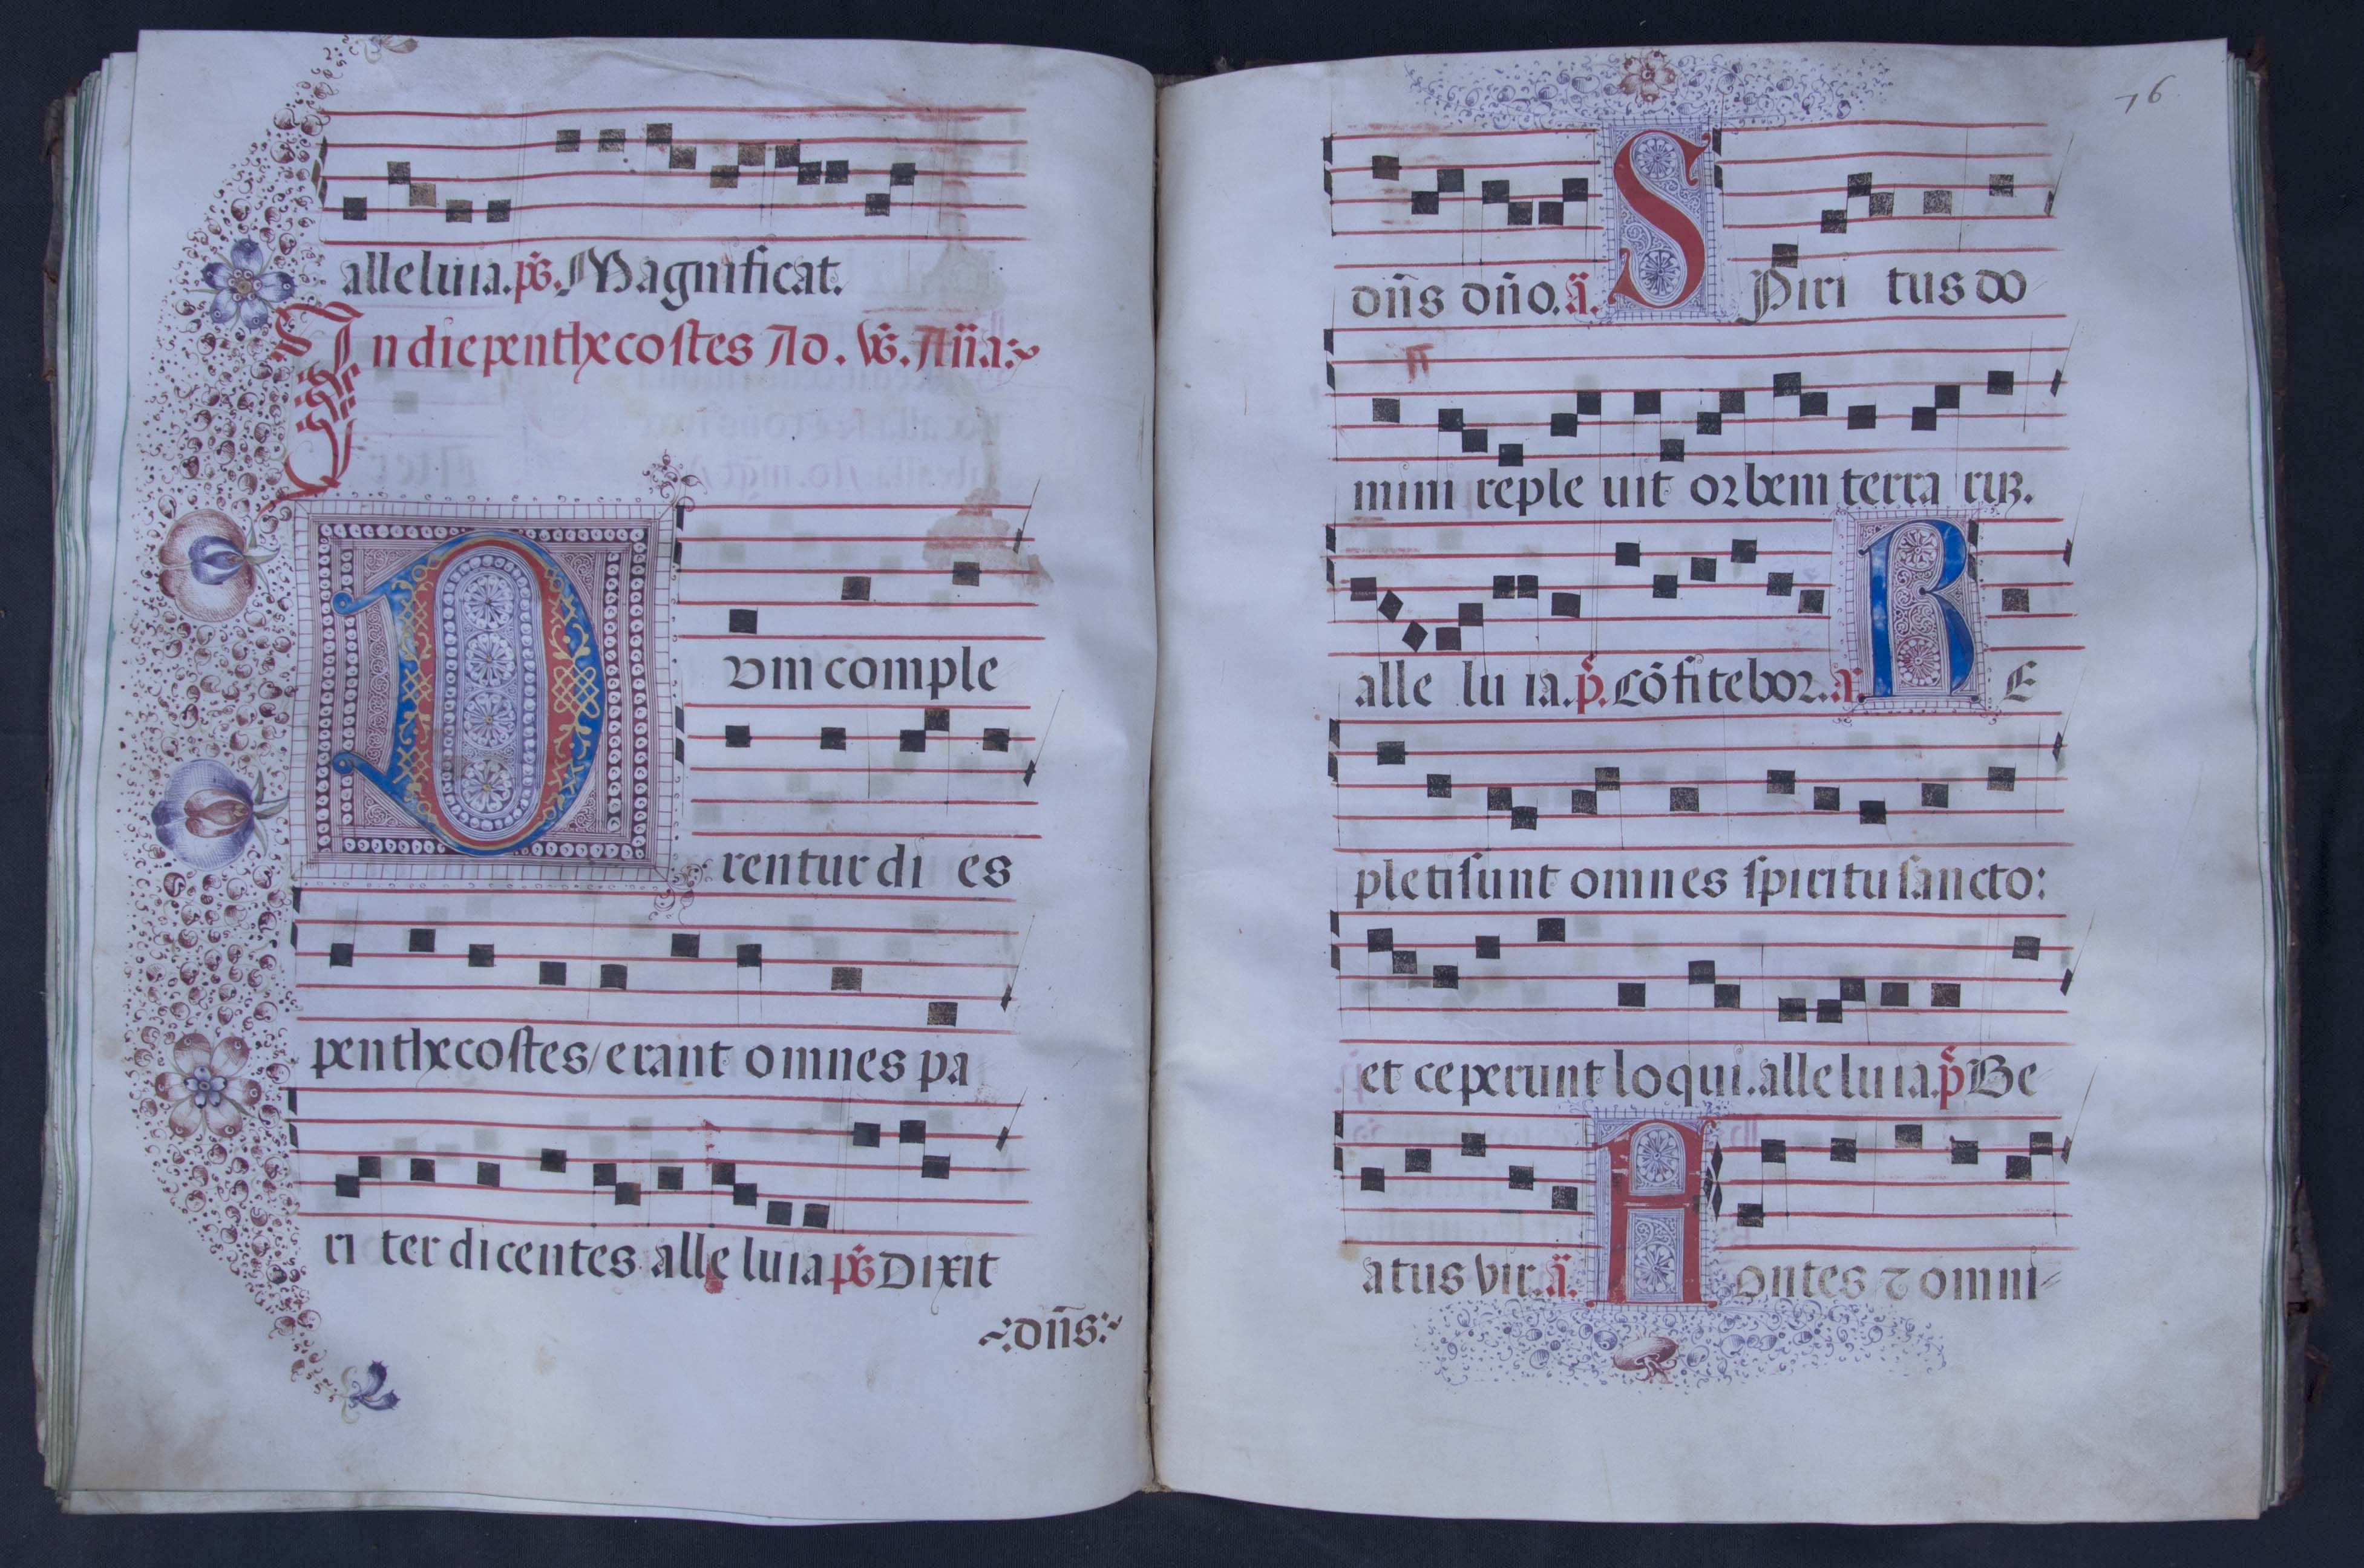 alleluia. ps̃. Magnificat.
In die penthecostes Ad. Vs̃. Añа:~
Dum comple
rentur di es
penthecostes/ erant omnes pa
ri ter dicentes alle luia ps̃ Dixit
~:dñs:~
76
dñs dño. ã. SPiri tus do
mini reple uit orbem terra rūꝫ.
alle lu ia. p̃. Cõfitebor. ã. RE
pleti sunt omnes spiritu sancto:
et ceperunt loqui. alleluia. p̃ Be
atus vir. ã. Fontes ⁊ omni⸗